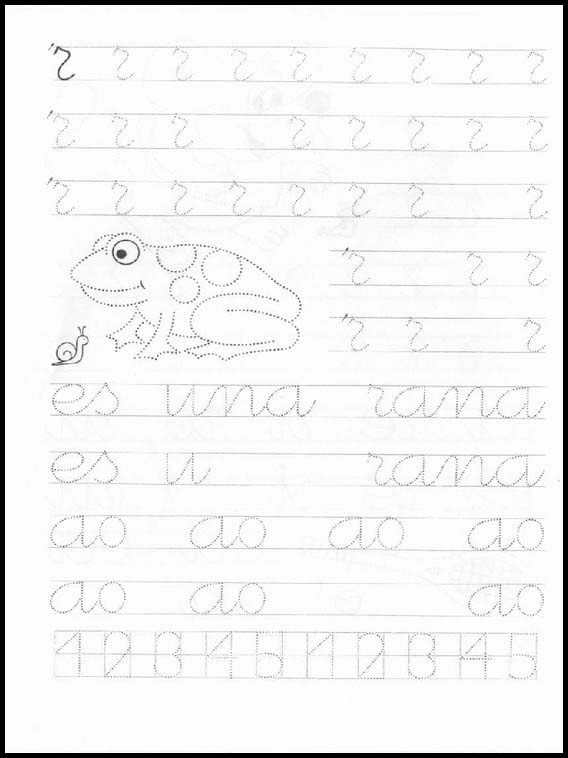 r r r r r r r r r
r r r r r r r r
r r r r r r r r
r r r
r r r
es una rana
es u rana
ao ao ao ao
ao ao ao
1 2 3 4 5 1 2 3 4 5